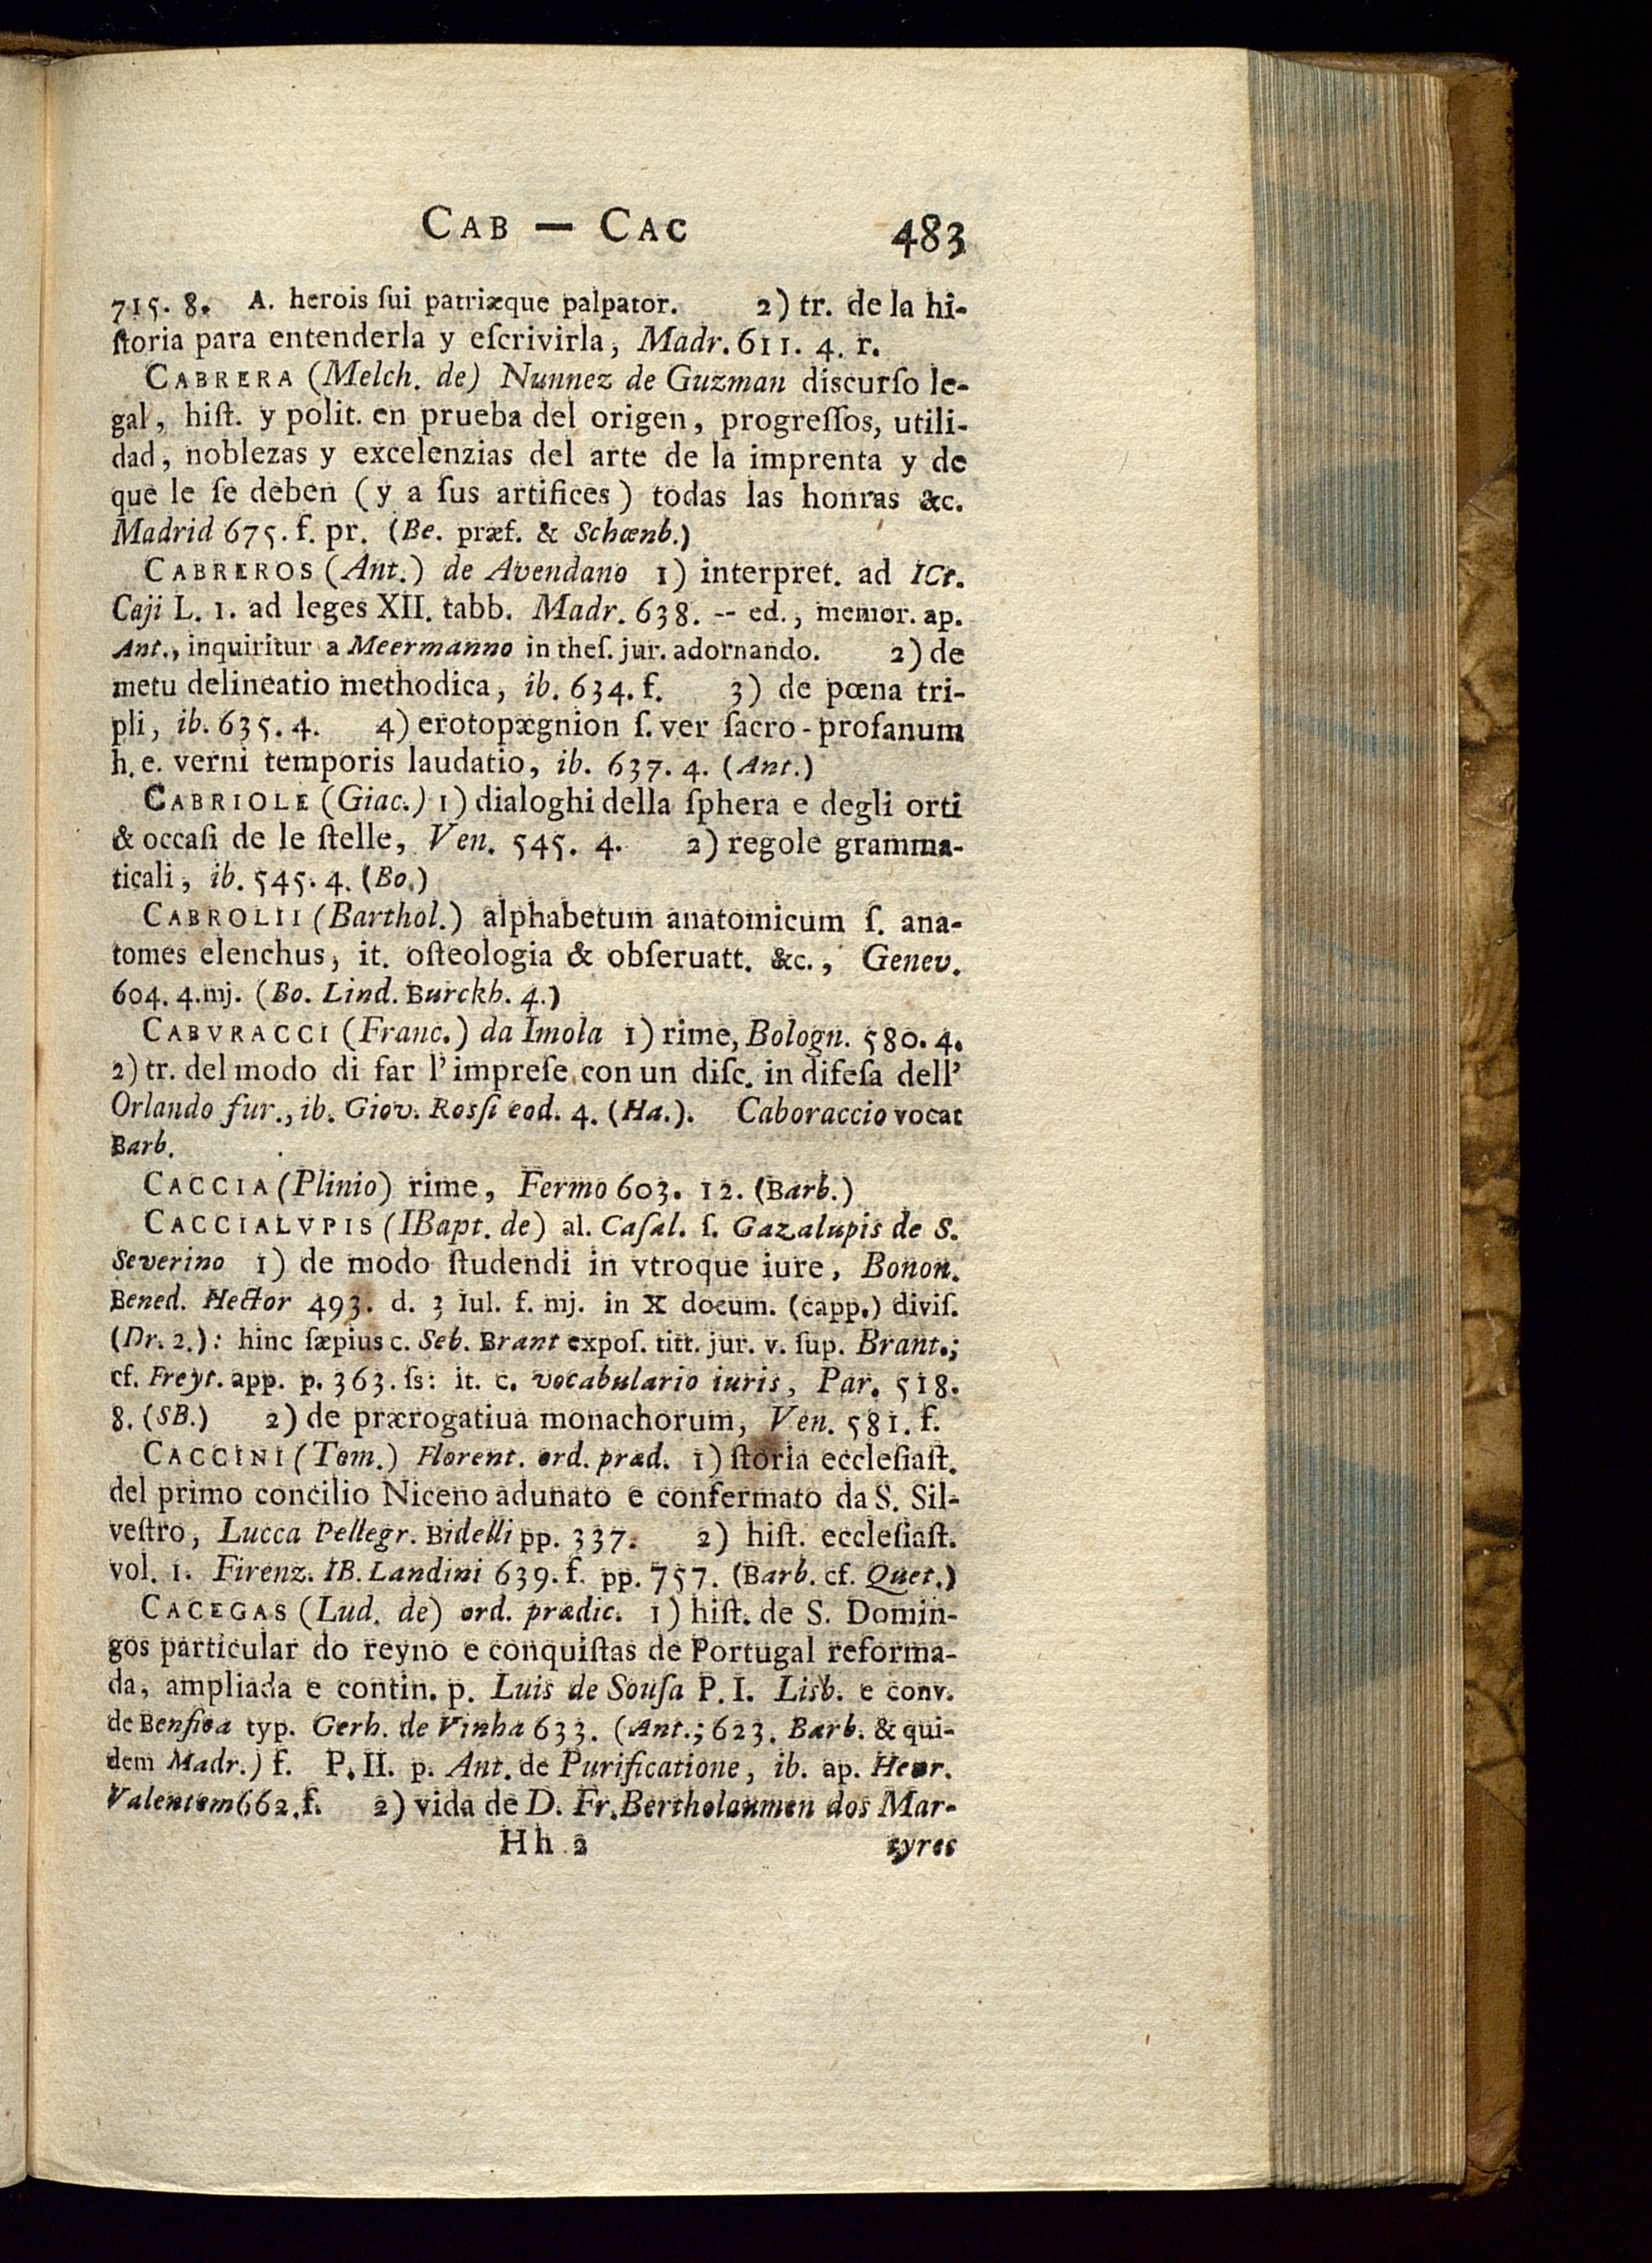 CAB — CAC 483
715. 8. A. herois ſui patriæque palpator. 2) tr. de la hi-
ſtoria para entenderla y eſcrivirla, Madr. 611. 4. r.
CABRERA (Melch. de) Nunnez de Guzman discurſo le-
gal, hiſt. y polit. en prueba del origen, progreſſos, utili-
dad, noblezas y excelenzias del arte de la imprenta y de
que le ſe deben (y a ſus artifices) todas las honras &c.
Madrid 675. f. pr. (Be. præf. & Schœnb.)
CABREROS (Ant.) de Avendano 1) interpret. ad ICt.
Caji L. 1. ad leges XII. tabb. Madr. 638. -- ed., memor. ap.
Ant., inquiritur a Meermanno in theſ. jur. adornando. 2) de
metu delineatio methodica, ib. 634. f. 3) de pœna tri-
pli, ib. 635. 4. 4) erotopægnion ſ. ver ſacro-profanum
h. e. verni temporis laudatio, ib. 637. 4. (Ant.)
CABRIOLE (Giac.) 1) dialoghi della ſphera e degli orti
& occaſi de le ſtelle, Ven. 545. 4. 2) regole gramma-
ticali, ib. 545. 4. (Bo.)
CABROLII (Barthol.) alphabetum anatomicum ſ. ana-
tomes elenchus, it. oſteologia & obſeruatt. &c., Genev.
604. 4. mj. (Bo. Lind. Burckh. 4.)
CABVRACCI (Franc.) da Imola 1) rime, Bologn. 580. 4.
2) tr. del modo di far l'impreſe con un diſc. in difeſa dell'
Orlando fur., ib. Giov. Rosſi eod. 4. (Ha.). Caboraccio vocat
Barb.
CACCIA (Plinio) rime, Fermo 603. 12. (Barb.)
CACCIALVPIS (IBapt. de) al. Caſal. ſ. Gazalupis de S.
Severino 1) de modo ſtudendi in vtroque iure, Bonon.
Bened. Hector 493. d. 3 Iul. f. mj. in X docum. (capp.) diviſ.
(Dr. 2.): hinc ſæpius c. Seb. Brant expoſ. titt. jur. v. ſup. Brant.;
cf. Freyt. app. p. 363. ſs: it. c. vocabulario iuris, Par. 518.
8. (SB.) 2) de prærogatiua monachorum, Ven. 581. f.
CACCINI (Tom.) Florent. ord. præd. 1) ſtoria eccleſiaſt.
del primo concilio Niceno adunato e confermato da S. Sil-
veſtro, Lucca Pellegr. Bidelli pp. 337. 2) hiſt. eccleſiaſt.
vol. 1. Firenz. IB. Landini 639. f. pp. 757. (Barb. cf. Quet.)
CACEGAS (Lud. de) ord. prædic. 1) hiſt. de S. Domin-
gos particular do reyno e conquiſtas de Portugal reforma-
da, ampliada e contin. p. Luis de Souſa P. I. Lisb. e conv.
de Benfica typ. Gerh. de Vinha 633. (Ant.; 623. Barb. & qui-
dem Madr.) f. P. II. p. Ant. de Purificatione, ib. ap. Henr.
Valentem 662. f. 2) vida de D. Fr. Bertholaumen dos Mar-
Hh 2 tyres